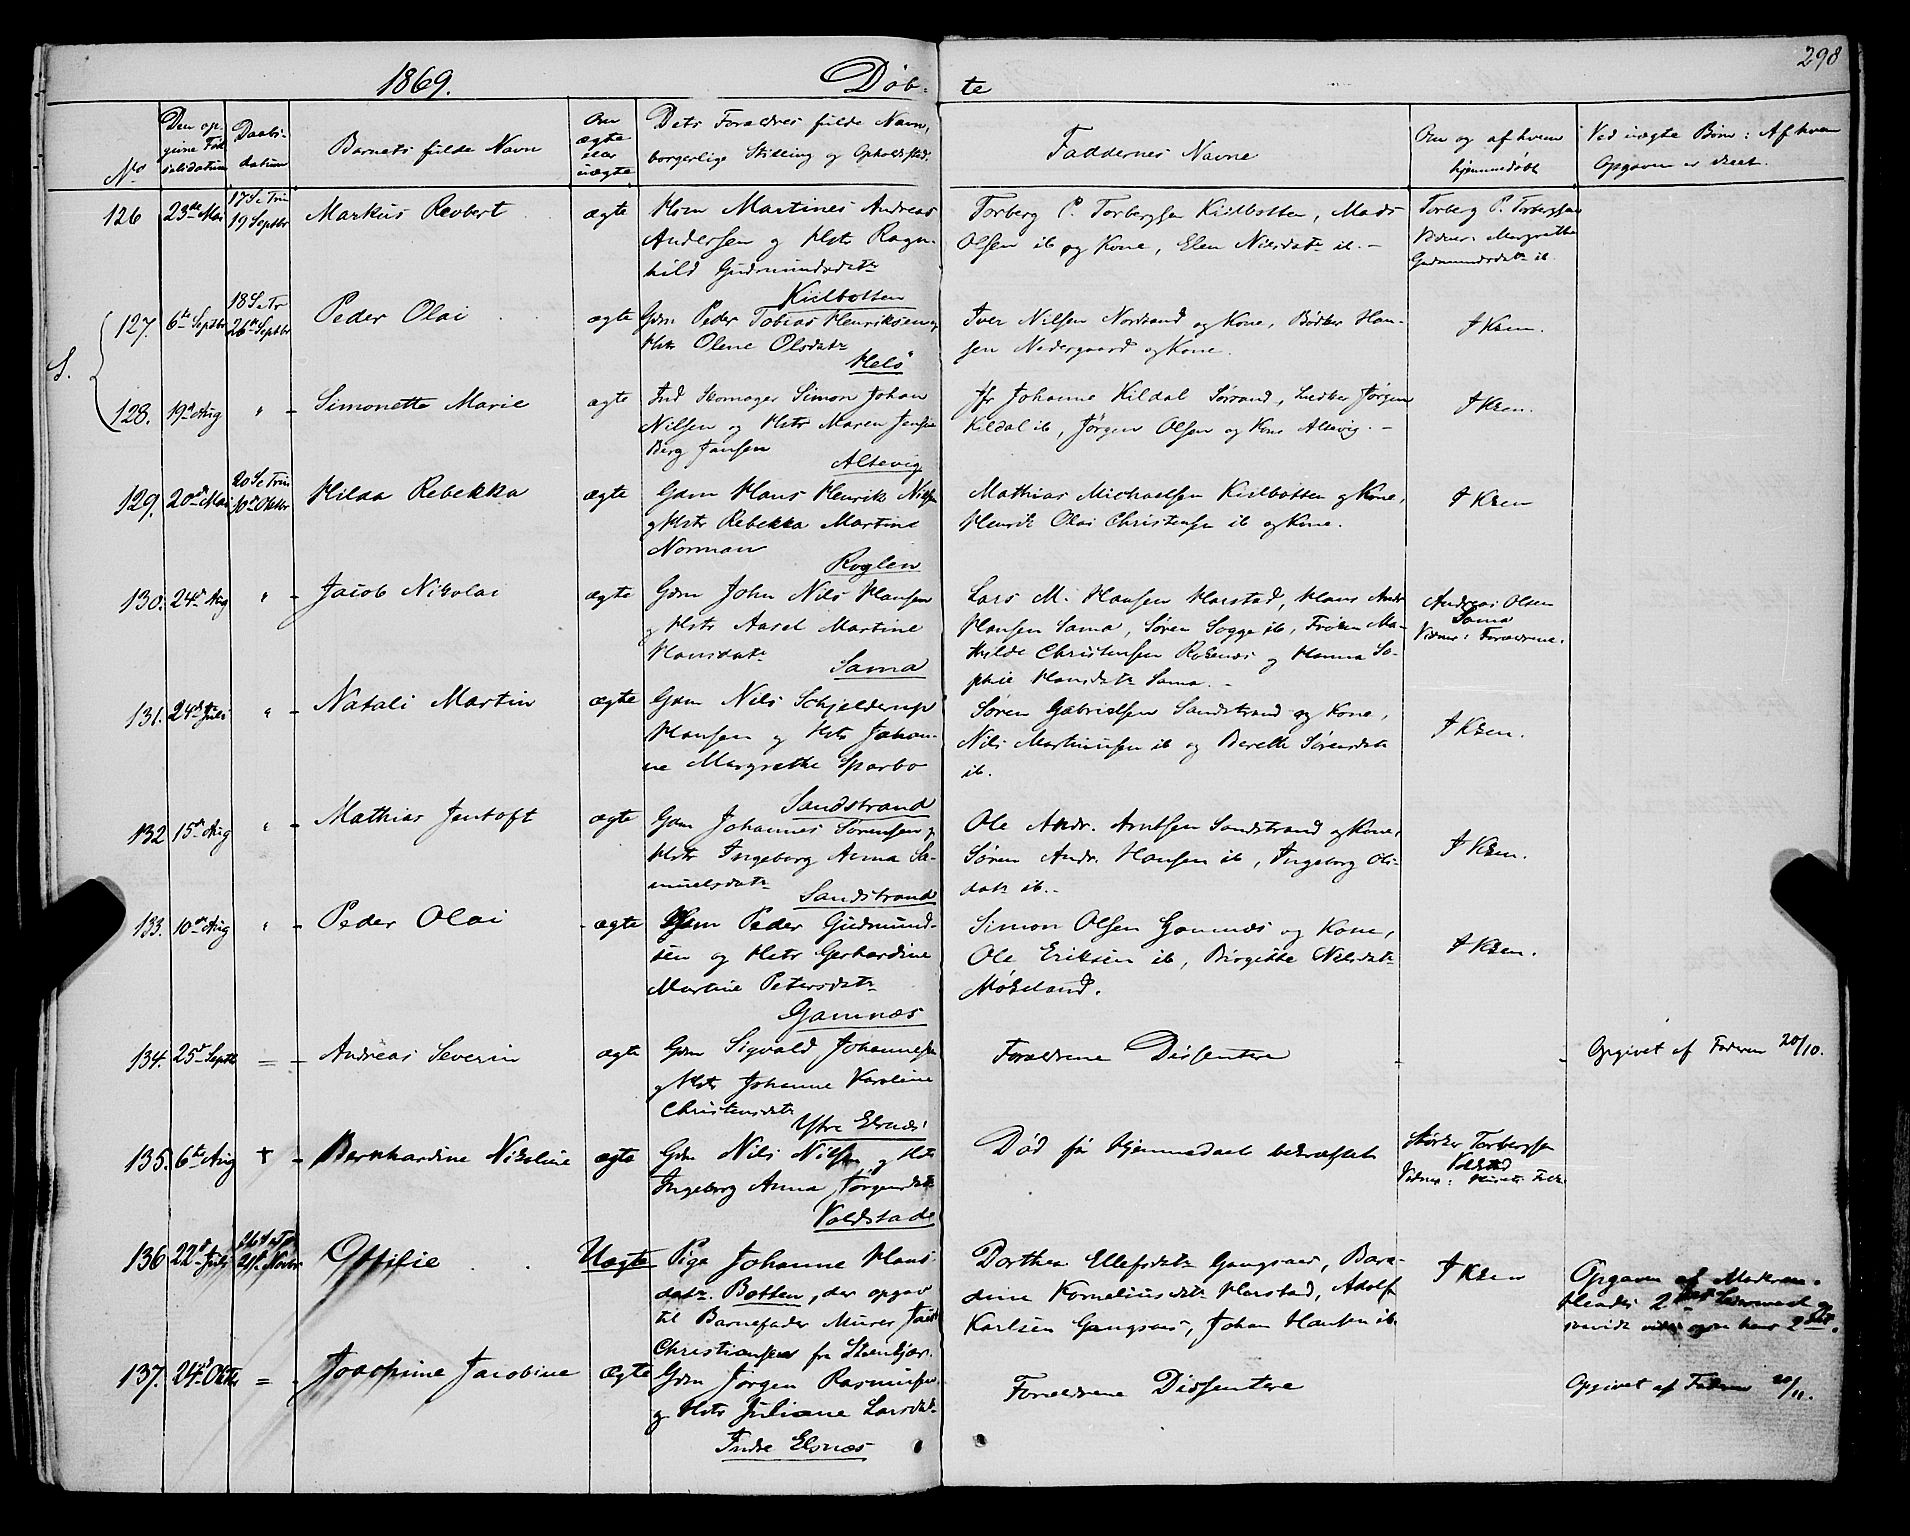 298
1869.
Døb- te
No
Den op-
givne Fød-
selsdatum
Daabs-
datum
Barnets fulde Navn
Om
ægte
eller
uægte
Dets Forældres fulde Navn,
borgerlige Stilling og Opholdssted.
Faddernes Navne
Om og af hvem
hjemmedøbt
Ved uægte Børn: Af hvem
Opgaven er skeet.
126 23de Mai 17 S. e Trin
19 Septbr Markus Reobert ægte Hsm Martines Andreas
Andersen og Hstr Ragn-
hild Gudmundsdatr
Kiilbotten
Torberg P. Torbergsen Kiilbotten, Mads
Olsen ib og Kone, Elen Nilsdatr ib. -
Torberg P. Torbergsen
Vidner: Margrethe
Gudmundsdatr ib.
S.
127. 6te Septbr 18 S. e Tr
26de Septbr Peder Olai ægte Gdm Peder Tobias Henriksen og
Hstr Olene Olsdatr
Melö
Iver Nilsen Nordsand og Kone, Bödker Han-
sen Nedergaard og Kone.
I Krken.
128. 19de Aug " - Simonette Marie ægte Ind Skomager Simon Johan
Nilsen og Hstr Maren
Berg Jansen
Altevig
Jfr Johanne Kildal Sörsand, Jørgen
Kildal ib, Jørgen Olsen og Kone Altevig. -
I Krken.
129. 20de Mai 20 S. e Trin
10de Oktbr Hilda Rebekka ægte Gdm Hans Henrik Nilsen
og Hstr Rebekka Martine
Norman
Roglen
Mathias Michaelsen Kiilbotten og Kone,
Henrik Olai Christensen ib og Kone.
I Krken
130. 24de Aug " - Jacob Nikolai ægte Gdm John Nils Hansen
og Hstr Aasel Martine
Hansdatr
Sama
Lars M. Hansen Harstad, Hans Andr
Hansen Sama, Søren Sogge ib, Frøken Ma-
thilde Christensen Røkenæs og Hanna So-
phie Hansdatr Sama. -
Andreas Olsen
Sama
Vidner: Forældrene.
131. 24de Juli " - Natali Martin ægte Gdm Nils Schjelderup
Hansen og Hstr Johan-
ne Margrethe Sparbo
Sandstrand
Søren Gabrielsen Sandstrand og Kone,
Nils Martinusen ib og Berethe Sørensdatr
ib.
I Krken.
132 15de Aug " - Mathias Jentoft ægte Gdm Johannes Sørensen og
Hstr Ingeborg Anna Sa-
muelsdatr
Sandstrand
Ole Andr. Arntsen Sandstrand og Kone,
Søren Andr. Hansen ib, Ingeborg Ols-
datr ib. -
I Krken.
133. 10de Aug " - Peder Olai ægte Hsm Peder Gudmund-
sen og Hstr Gerhardine
Martine Petersdatr
Gamnæs
Simon Olsen Gamnæs og Kone,
Ole Eriksen ib, Birgitte Nilsdatr
Møkeland.
I Krken.
134. 25de Septbr = - Andreas Severin ægte Gdm Sigvald Johannesen
og Hstr Johanne Karoline
Christensdatr
Ytre Elsnæs
Forældrene Dissentere
Opgivet af Faderen 20/10.
135. 6te Aug + - Bernhardine Nikoline ægte Gdm Nils Nilsen og Hstr
Ingeborg Anna Jørgensdatr
Voldstade
Død før Hjemmedaab bekræftet
Størker Torbergsen
Voldstad
Vidner: Husets Folk
136 22de Juli 26 S. e Tr.
21de Novbr Ottilie . . Uægte Pige Johanne Hans-
datr Botten, der opgav
til Barnefader Murer
Christiansen fra Steenkjær.
Dorthea Ellefsdatr Gangsaas, Bera-
dine Korneliusdatr Harstad, Adolf
Karlsen Gangsaas, Johan Hansen ib.
I Krken
Opgaven af Moderen.
Hendes 2det Leiermaal og
saavidt vides ogsaa hans 2det.
137. 24de Oktbr = - Joachime Jacobine Ægte Gdm Jørgen Rasmusen
og Hstr Juliane Larsdatr
Indre Elsnæs
Forældrene Dissentere
Opgivet af Faderen 20/11.